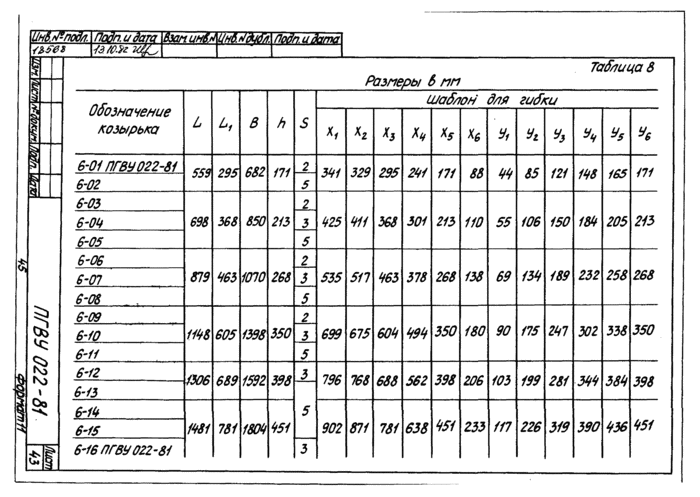 Инв.№ подл. Подп. и дата Взам. инв.№ Инв.№ дубл. Подп. и дата
18568 13.10.82
Таблица 8
Размеры в мм
Обозначение козырька L L1 B h S Шаблон для гибки
X1 X2 X3 X4 X5 X6 У1 У2 У3 У4 У5 У6
6-01 ПГВУ 022-81 559 295 682 171 2 341 329 295 241 171 88 44 85 121 148 165 171
6-02 5
6-03 2
6-04 698 368 850 213 3 425 411 368 301 213 110 55 106 150 184 205 213
6-05 5
6-06 2
6-07 879 463 1070 268 3 535 517 463 378 268 138 69 134 189 232 258 268
6-08 5
6-09 2
6-10 1148 605 1398 350 3 699 675 604 494 350 180 90 175 247 302 338 350
6-11 5
6-12 1306 689 1592 398 3 796 768 688 562 398 206 103 199 281 344 384 398
6-13
6-14 5
6-15 1481 781 1804 451 902 871 781 638 451 233 117 226 319 390 436 451
6-16 ПГВУ 022-81 3
Изм. Лист № докум. Подп. Дата
45
ПГВУ 022-81
Формат 11
Лист
43